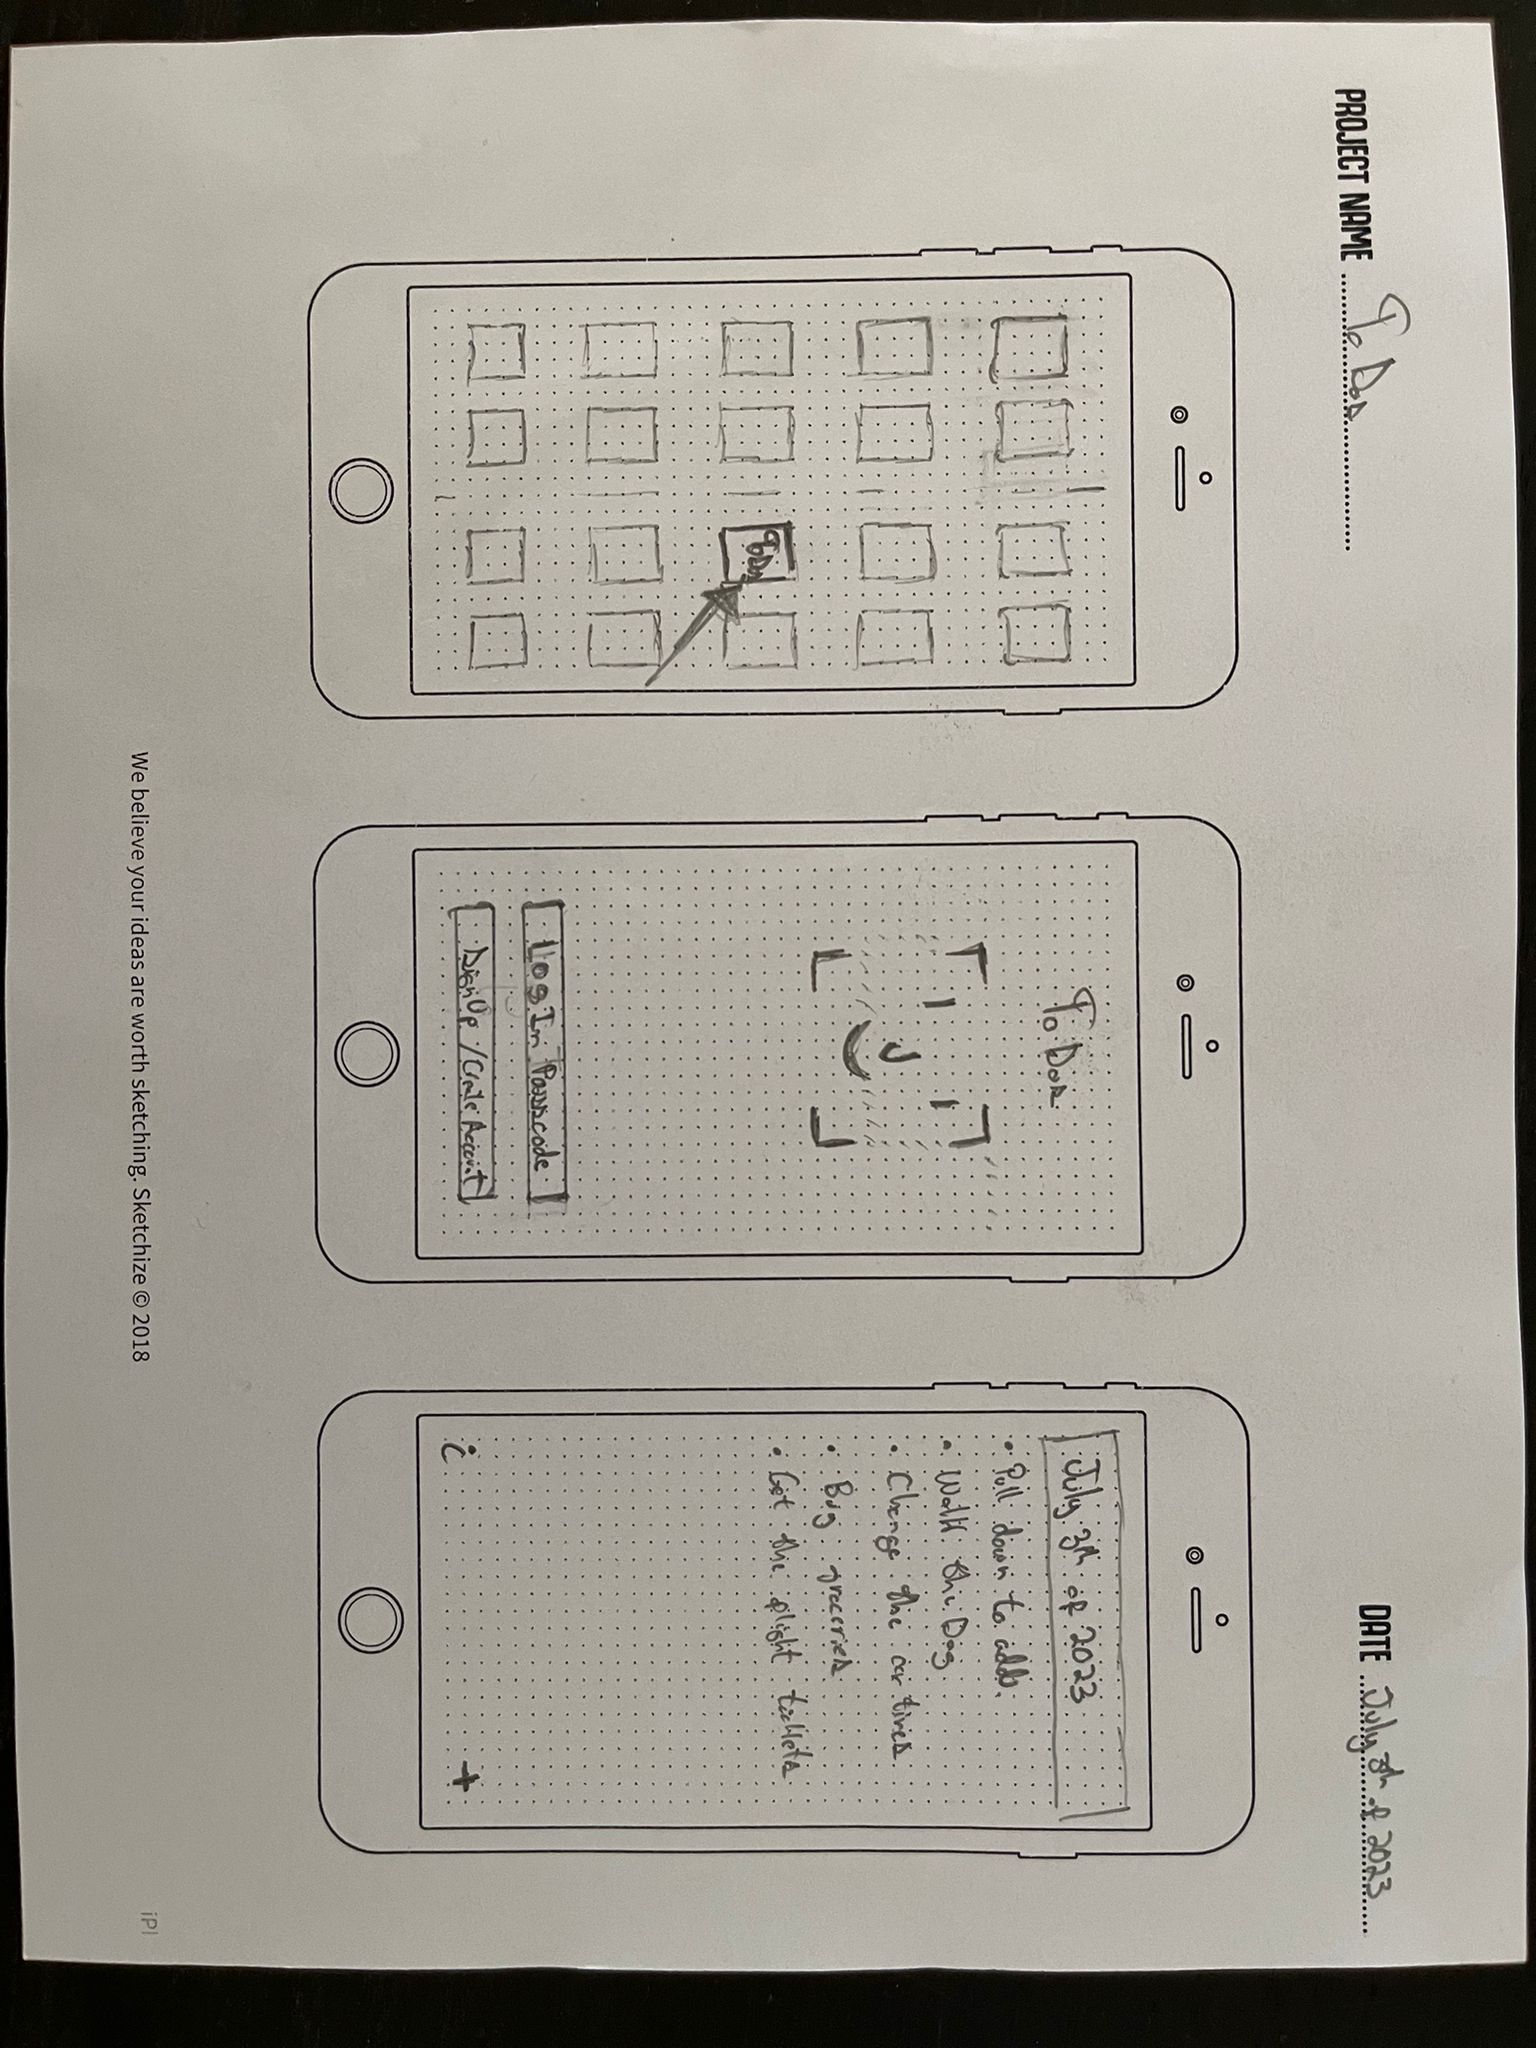 PROJECT NAME To Dos
DATE July 3th of 2023
To Dos
To Dos
Log In Passcode
Sign Up / Crate Account
July 3th of 2023
• Pull down to add.
• Walk the Dog
• Change the car tires
• Buy groceries
• Get the flight tickets
i
+
We believe your ideas are worth sketching. Sketchize © 2018
iPl